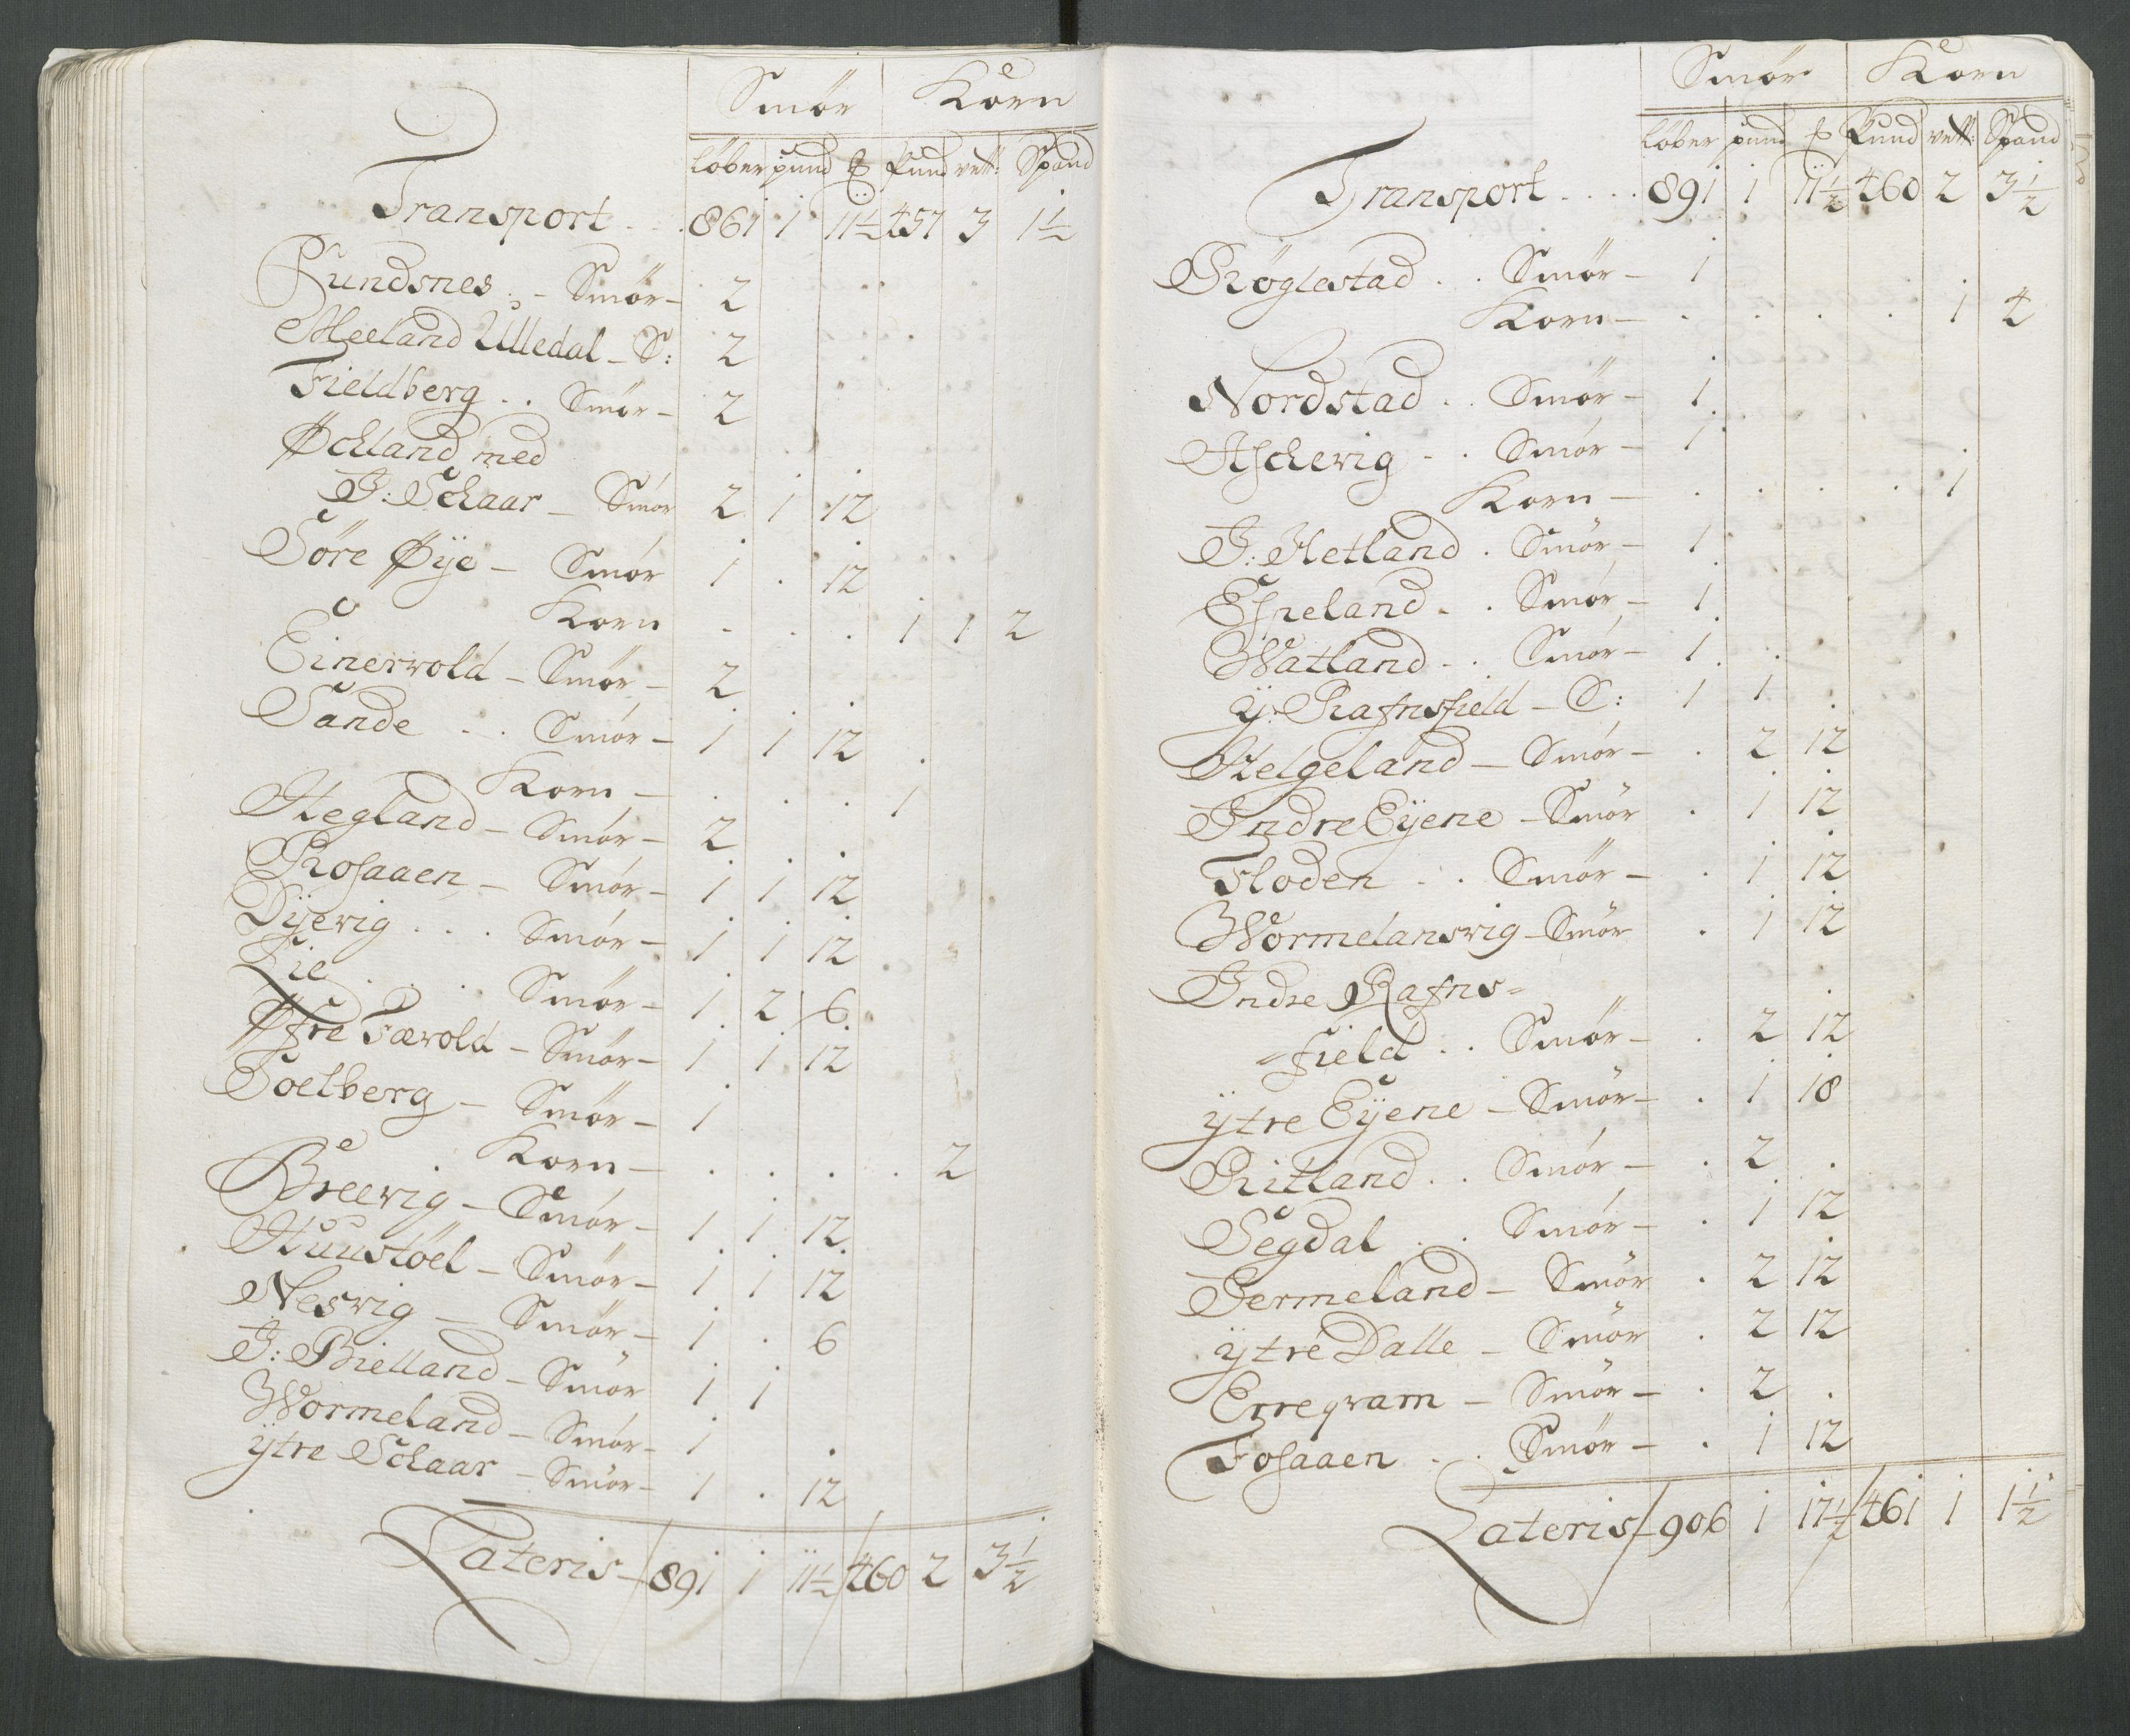 Smör Korn
löber pund ℔ Pund vett: Spand
Transport . . . 861 1 11½ 457 3 1½
Pundsnes . - Smör - 2
Meeland Ülledal - S: 2
Fieldberg . . Smör - 2
Øchland med
J: Schaar - Smör 2 1 12
Söre Øÿe - Smör 1 . 12
Korn - . . 1 1 2
Einervold - Smör - 2
Sande . . Smör - 1 1 12
Korn - . . . 1
Hegland - Smör - 2
Rosaaen - Smör - 1 1 12
Dÿevig . . . Smör - 1 1 12
Lie . . . Smör - 1 2 6
Øfre Tærold - Smör - 1 1 12
Soelberg - Smör - 1
Korn - . . . . 2
Breevig - Smör - 1 1 12
Huustöel - Smör - 1 1 12
Nesvig - Smör - 1 . 6
J: Bielland - Smör 1 1
Wormeland - Smör - 1
ÿtre Schaar - Smör - 1 . 12
Lateris - 891 1 11½ 460 2 3½
Smör Korn
löber pund ℔ Pund vett: Spand
Transport . . . . 891 1 11½ 460 2 3½
Röglestad . . Smör - 1
Korn - . . . . 1 4
Nordstad . . Smör - 1
Aschevig - . Smör - 1
Korn - . . . . 1
J: Hetland . Smör - 1
Espeland - . Smör - 1
Watland - . Smör - 1
ÿ: Rafnsfield - S: 1 1
Helgeland - Smör - . 2 12
Indre Eÿene - Smör . 1 12
Floden . . Smör - . 1 12
Wormelansvig - Smör . 1 12
Indre Rafns=
=field . . Smör - . 2 12
ÿtre Eÿene - Smör - . 1 18
Ritland . . Smör - . 2 .
Segdal . . Smör - . 1 12
Jermeland - Smör . 2 12
ÿtre Dalle - Smör . 2 12
Erreqvam - Smör - . 2 .
Fosaaen . . Smör - . 1 12
Lateris - 906 1 17½ 461 1 1½